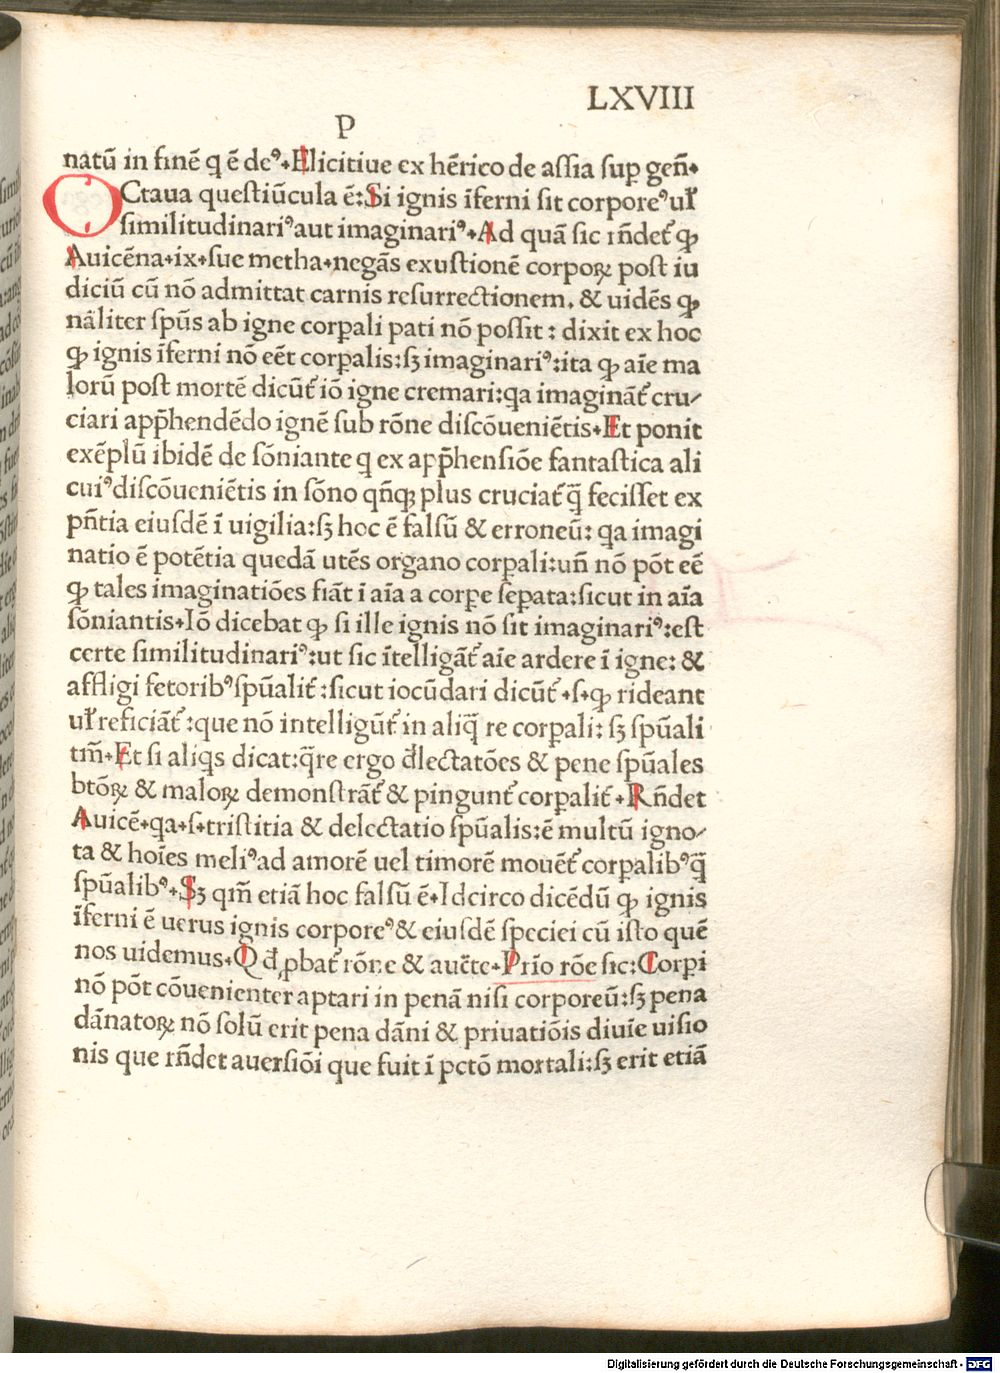 LXVIII
P
natū in finē q ē deꝰ. Elicitiue ex hērico de assia sup̱ geñ.
OCtaua questiūcula ē: Si ignis īferni sit corporeꝰ uł
similitudinariꝰ aut imaginariꝰ. Ad quā sic rñdet᷑ ꝙ
Auicēna. ix. sue metha. negās exustionē corpoꝝ post iu
diciū cū nō admittat carnis resurrectionem. & uidēs ꝙ
nāliter sp̄us ab igne corp̱ali pati nō possit: dixit ex hoc
ꝙ ignis īferni nō eēt corp̱alis: sꝫ imaginariꝰ: ita ꝙ aīe ma
lorū post mortē dicūt᷑ iō igne cremari: qa imagināt᷑ cru⸗
ciari app̄hendēdo ignē sub rōne discōueniētis. Et ponit
exēplū ibidē de sōniante q ex app̄hensiōe fantastica ali
cuiꝰ discōueniētis in sōno qñqꝫ plus cruciat᷑ q̄ fecisset ex
pñtia eiusdē ī uigilia: sꝫ hoc ē falsū & erroneū: qa imagi
natio ē potētia quedā utēs organo corp̱ali: uñ nō pōt eē
ꝙ tales imaginatiōes fiāt ī aīa a corp̱e sep̱ata: sicut in aīa
sōniantis. Iō dicebat ꝙ si ille ignis nō sit imaginariꝰ: est
certe similitudinariꝰ: ut sic ītelligāt᷑ aīe ardere ī igne: &
affligi fetoribꝰ sp̄ualit᷑: sicut iocūdari dicūt᷑. s. ꝙ rideant
uł reficiāt᷑: que nō intelligūt᷑ in aliq̄ re corp̱ali: sꝫ sp̄uali
tm̄. Et si aliqs dicat: q̄re ergo đlectatōes & pene sp̄uales
btōꝝ & maloꝝ demonstrāt᷑ & pingunt᷑ corp̱alit᷑. Rñdet
Auicē. qa. s. tristitia & delectatio sp̄ualis: ē multū igno⸗
ta & hoīes meliꝰ ad amorē uel timorē mouēt᷑ corp̱alibꝰ q̄
sp̄ualibꝰ. Sꝫ qm̄ etiā hoc falsū ē. Idcirco dicēdū ꝙ ignis
īferni ē uerus ignis corporeꝰ & eiusdē speciei cū isto quē
nos uidemus. Q đ ꝓbat᷑ rōne & auc̄te. Prīo rōe sic: Corpi
nō pōt cōuenienter aptari in penā nisi corporeū: sꝫ pena
dānatoꝝ nō solū erit pena dāni & priuatiōis diuīe uisio
nis que rñdet auersiōi que fuit ī pctō mortali: sꝫ erit etiā
Digitalisierung gefördert durch die Deutsche Forschungsgemeinschaft - DFG